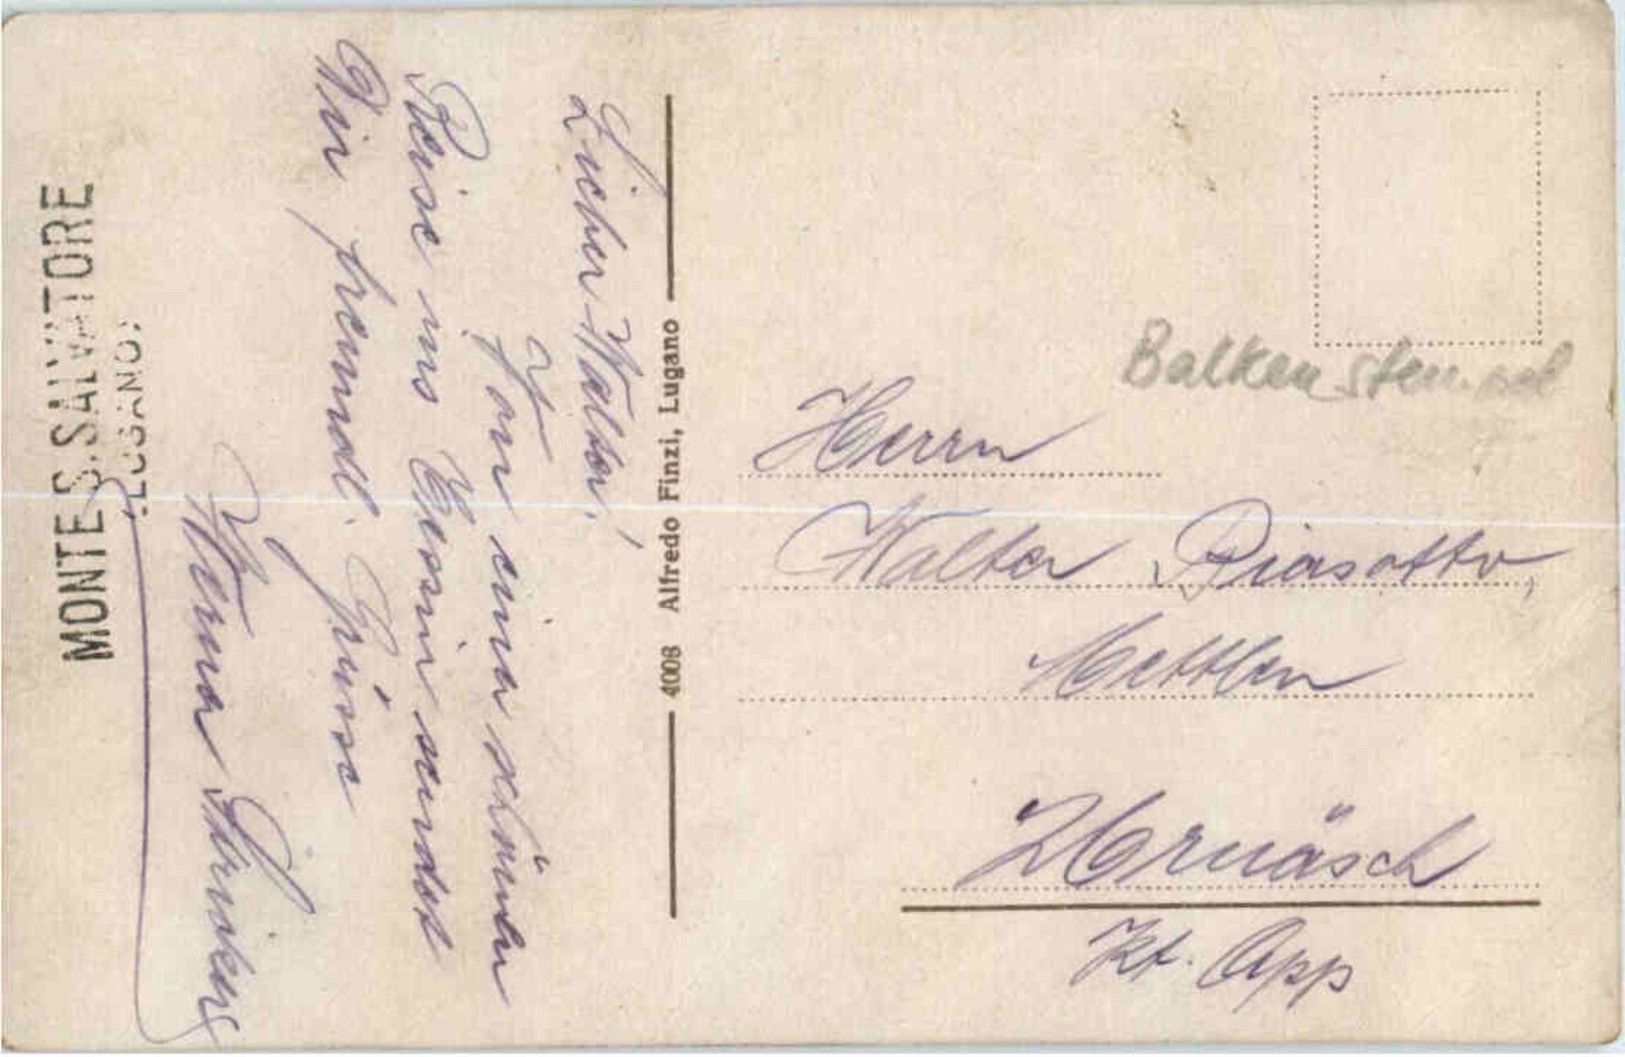 MONTE S. SALVATORE
(LUGANO)
Lieber Walter!
Von einer schönen
Reise ins Tessin sendet
Dir freundl. Grüsse
4008 Alfredo Finzi, Lugano
Balkenstempel
Herrn
Walter Biasotto,
Mettlen
Urnäsch
Kt. App